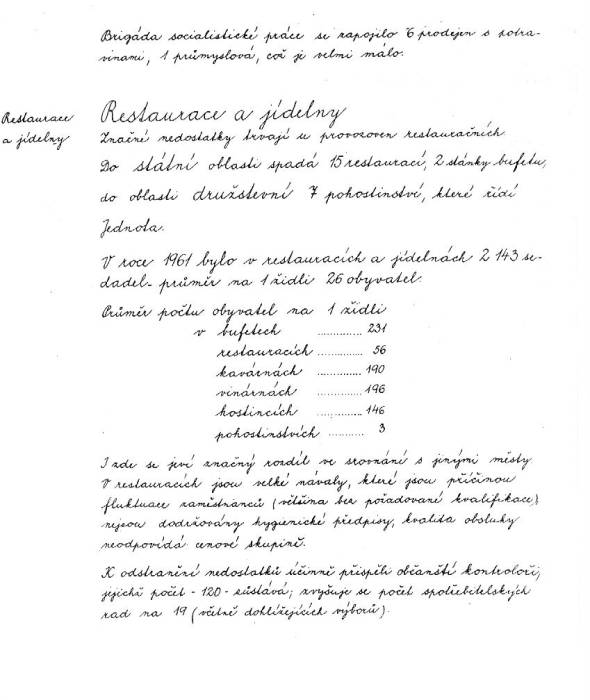 Brigáda socialistické práce se zapojilo 6 prodejen s potra-
vinami, 1 průmyslová, což je velmi málo.
Restaurace
a jídelny
Restaurace a jídelny
Značné nedostatky trvají u provozoven restauračních.
Do státní oblasti spadá 15 restaurací, 2 stánky bufetu,
do oblasti družstevní 7 pohostinství, které řídí
Jednota.
V roce 1961 bylo v restauracích a jídelnách 2 143 se-
dadel - průměr na 1 židli 26 obyvatel.
Průměr počtu obyvatel na 1 židli
v bufetech .............. 231
restauracích .............. 56
kavárnách .............. 190
vinárnách .............. 196
hostincích .............. 146
pohostinstvích ........... 3
I zde se jeví značný rozdíl ve srovnání s jinými městy.
V restauracích jsou velké návaly, které jsou příčinou
fluktuace zaměstnanců (většina bez požadované kvalifikace),
nejsou dodržovány hygienické předpisy, kvalita obsluhy
neodpovídá cenové skupině.
K odstranění nedostatků účinně přispěli občanští kontroloři,
jejichž počet - 120 - zůstává; zvyšuje se počet spotřebitelských
rad na 19 (včetně dohlížejících výborů).